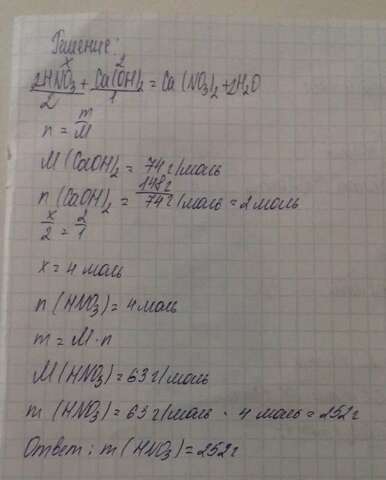 Решение:
x 2
2HNO₃ + Ca(OH)₂ = Ca(NO₃)₂ + 2H₂O
2 1
n = m/M
M(CaOH)₂ = 74 г/моль
n(CaOH)₂ = 148г/74 г/моль = 2 моль
x/2 = 2/1
x = 4 моль
n(HNO₃) = 4 моль
m = M · n
M(HNO₃) = 63 г/моль
m(HNO₃) = 63 г/моль · 4 моль = 252г
Ответ: m(HNO₃) = 252г